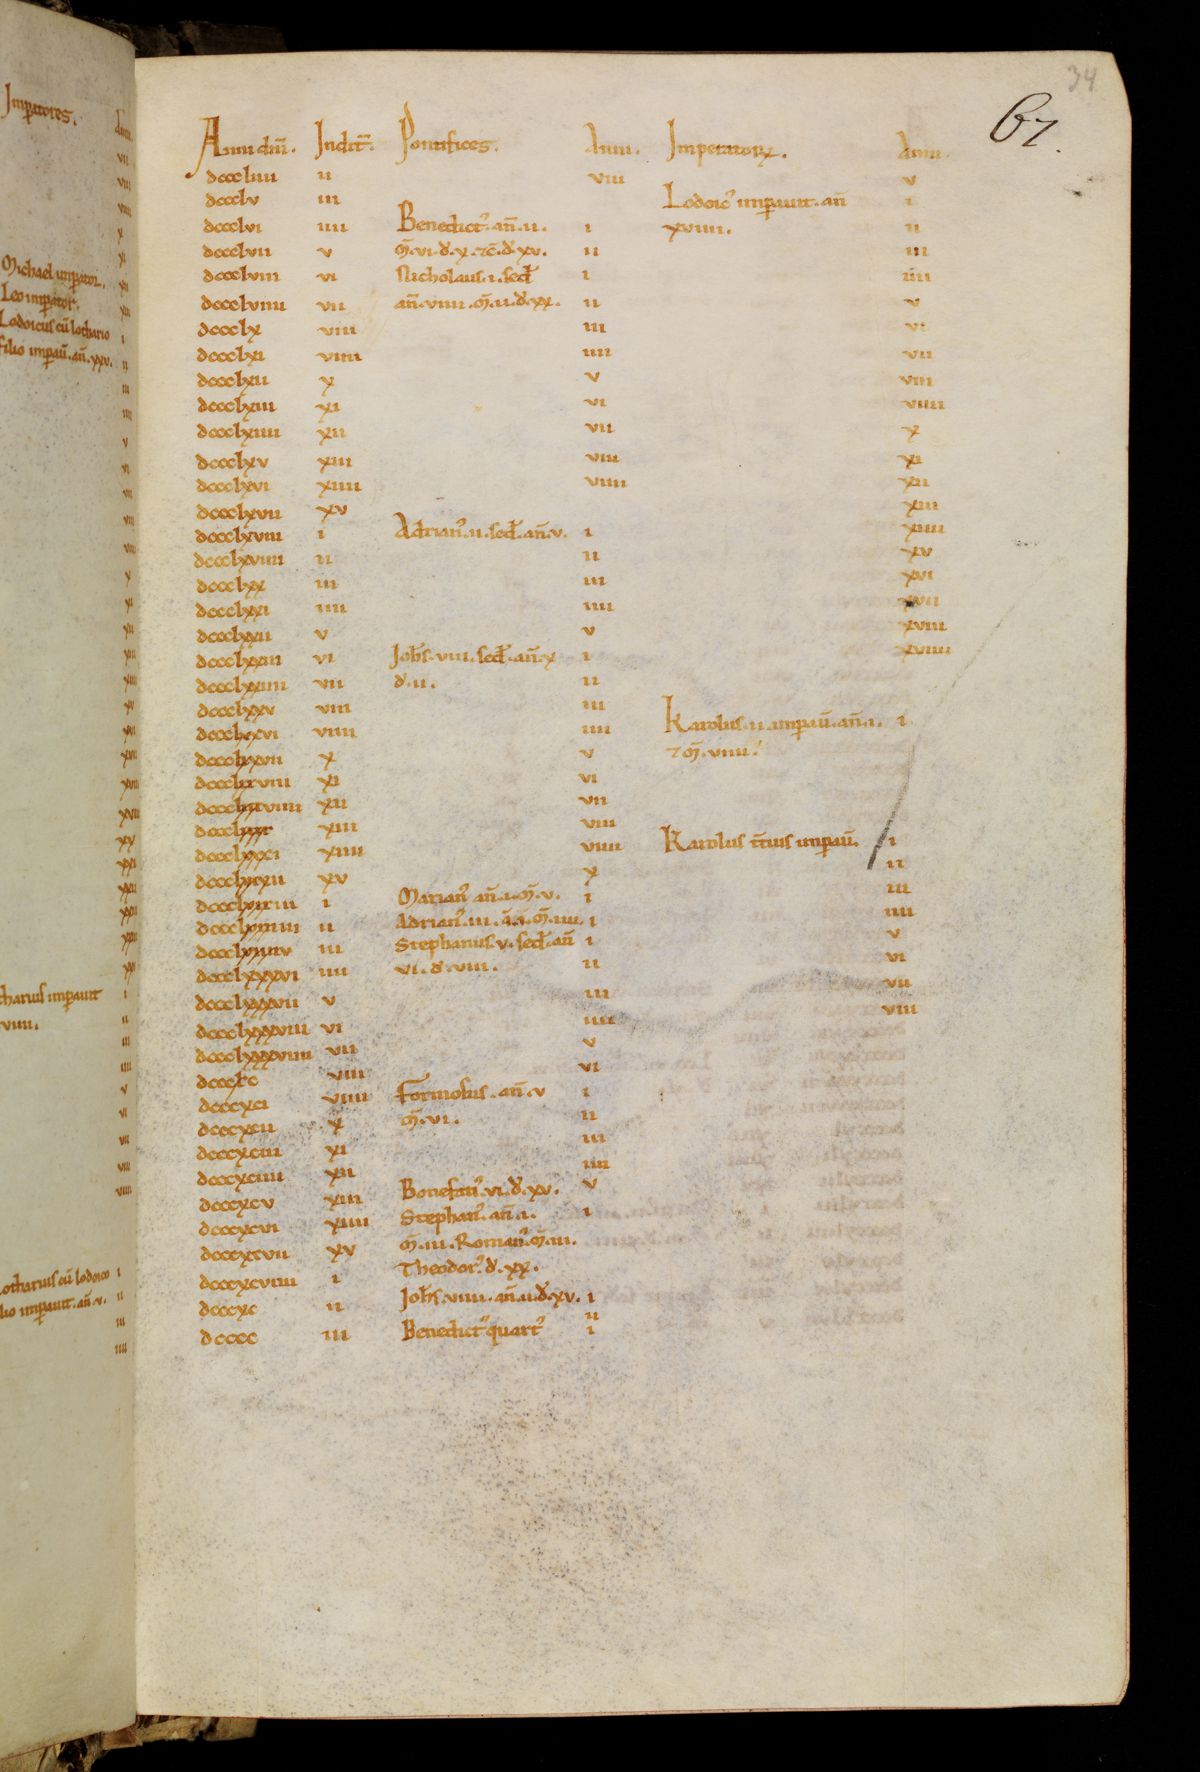 34
67.
Anni dñi. Indict̄. Pontifices. Anni. Imperatorꝝ. Anni.
dcccliiii ii viii v
dccclv iii Lodoic᷒ imꝑauit. an̄ i
dccclvi iiii Benedict᷒. an̄. ii. i xviiii. ii
dccclvii v m̄. vi. d̄. x. ⁊c̄. d̄. xv. ii iii
dccclviii vi Nicholaus. i. sed̄ i iiii
dccclviiii vii an̄. viiii. m̄. ii. d̄. xx. ii v
dccclx viii iii vi
dccclxi viiii iiii vii
dccclxii x v viii
dccclxiii xi vi viiii
dccclxiiii xii vii x
dccclxv xiii viii xi
dccclxvi xiiii viiii xii
dccclxvii xv xiii
dccclxviii i Adrian᷒. ii. sed̄. an̄. v. i xiiii
dccclxviiii ii ii xv
dccclxx iii iii xvi
dccclxxi iiii iiii xvii
dccclxxii v v xviii
dccclxxiii vi Joh̄s. viii. sed̄. an̄. x i xviiii
dccclxxiiii vii d̄. ii. ii
dccclxxv viii iii Karolus. ii. imꝑau̅. an̄. i. i
dccclxxvi viiii iiii ⁊ m̄. viiii.
dccclxxvii x v
dccclxxviii xi vi
dccclxxviiii xii vii
dccclxxx xiii viii
dccclxxxi xiiii viiii Karolus t̄cius imꝑau̅. i
dccclxxxii xv x ii
dccclxxxiii i Marian᷒ an̄. i. m̄. v. i iii
dccclxxxiiii ii Adrian᷒. iii. an̄. i. m̄. iiii. i iiii
dccclxxxv iii Stephanus. v. sed̄. an̄ i v
dccclxxxvi iiii vi. d̄. viii. ii vi
dccclxxxvii v iii vii
dccclxxxviii vi iiii viii
dccclxxxviiii vii v
dcccxc viii vi
dcccxci viiii Formosus. an̄. v i
dcccxcii x m̄. vi. ii
dcccxciii xi iii
dcccxciiii xii iiii
dcccxcv xiii Bonefati᷒. vi. d̄. xv. v
dcccxcvi xiiii Stephan᷒. an̄. i. i
dcccxcvii xv m̄. iii. Roman᷒. m̄. iii.
Theodor᷒. d̄. xx.
dcccxcviiii i
Joh̄s. viiii. an̄. ii. d̄. xv. i
dcccxc ii ii
dcccc iii Benedict᷒ quart᷒ i
Imꝑatores.
Michael imꝑator.
Leo imꝑator.
Lodoicus cū lothario
filio imꝑau̅. an̄. xxv.
tharius imꝑauit
viiii.
otharius cū lodoico
lio imꝑauit. an̄. v.